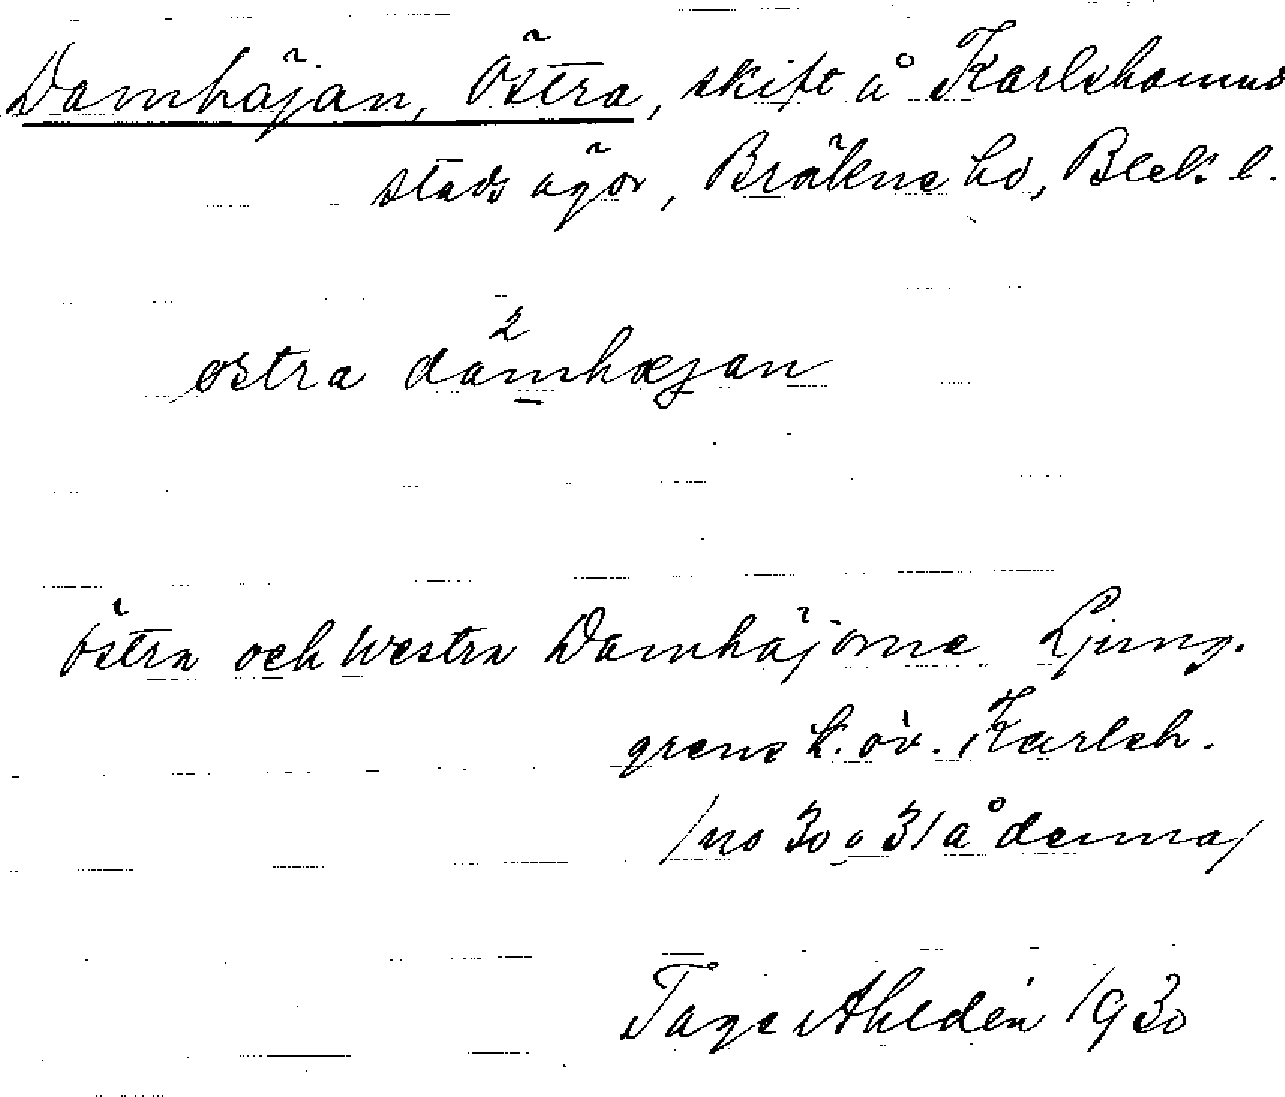 Damhäjan, Östra, skift å Karlshamns
stads ägor, Bräkne hd, Blek. l.
östra damhæjan
Östra och Westra Damhäjorne Ljung-
grens k. öv. Karlsh.
/no 30 o 31 å denna/
Tage Ahldén 1930